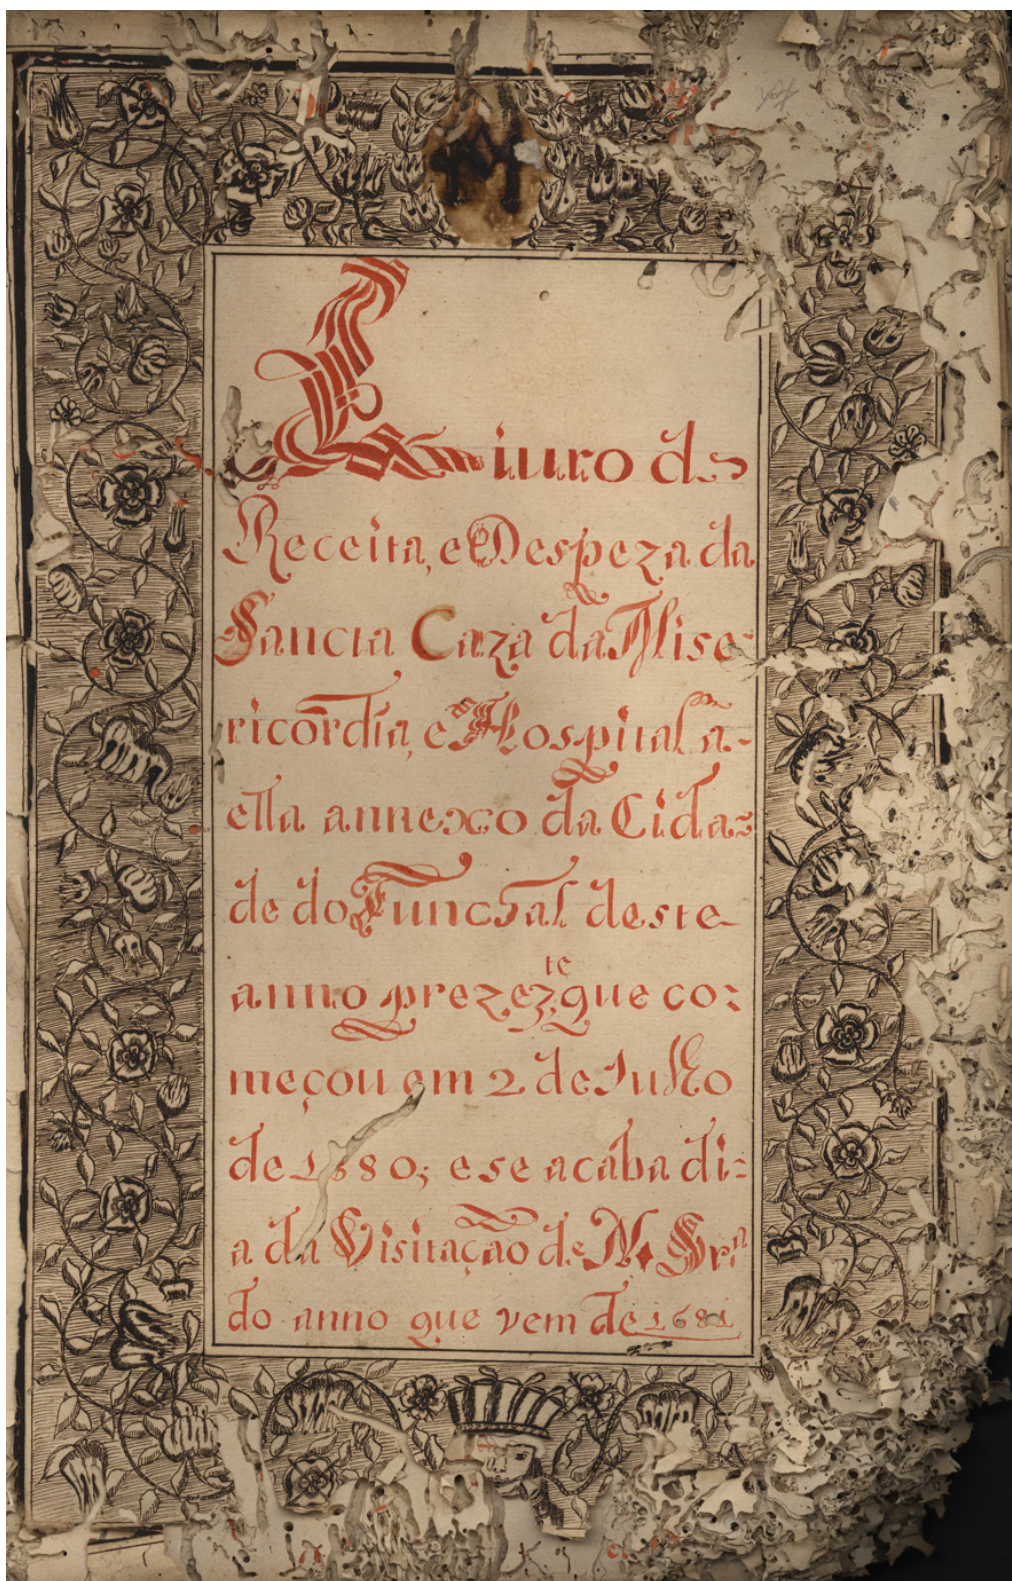 Liuro de
Receita, e Despeza da
Sancta Caza da Mise-
ricordia, e Hospital a-
ella annexo da Cida-
de do Funchal deste
anno prezez.te que co-
meçou em 2 de Julho
de 1680; e se acaba di-
a da Visitação de N. Sr.a
do anno que vem de 1681